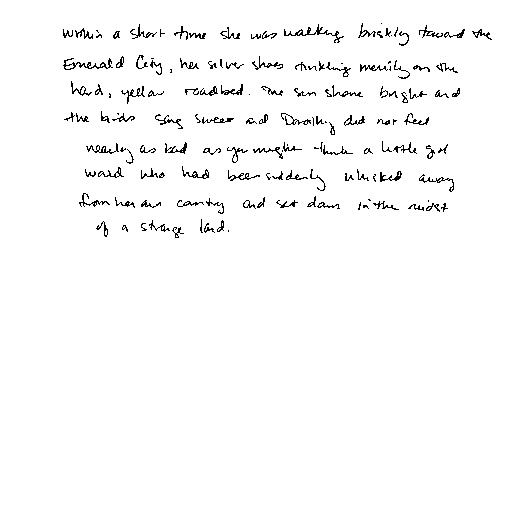 within a short time she was walking briskly toward the
Emerald City, her silver shoes tinkling merrily on the
hard, yellow roadbed. The sun shone bright and
the birds sang sweet and Dorothy did not feel
nearly as bad as you might think a little girl
would who had been suddenly whisked away
from her own country and set down in the midst
of a strange land.